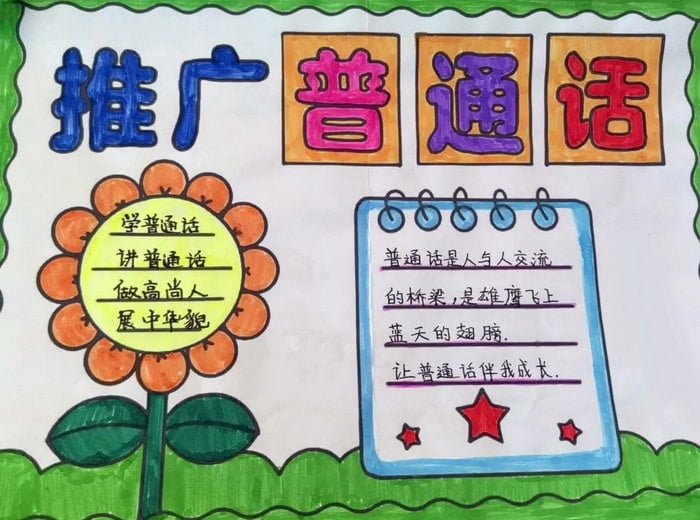 推广普通话
学普通话
讲普通话
做高尚人
展中华貌
普通话是人与人交流
的桥梁,是雄鹰飞上
蓝天的翅膀.
让普通话伴我成长.